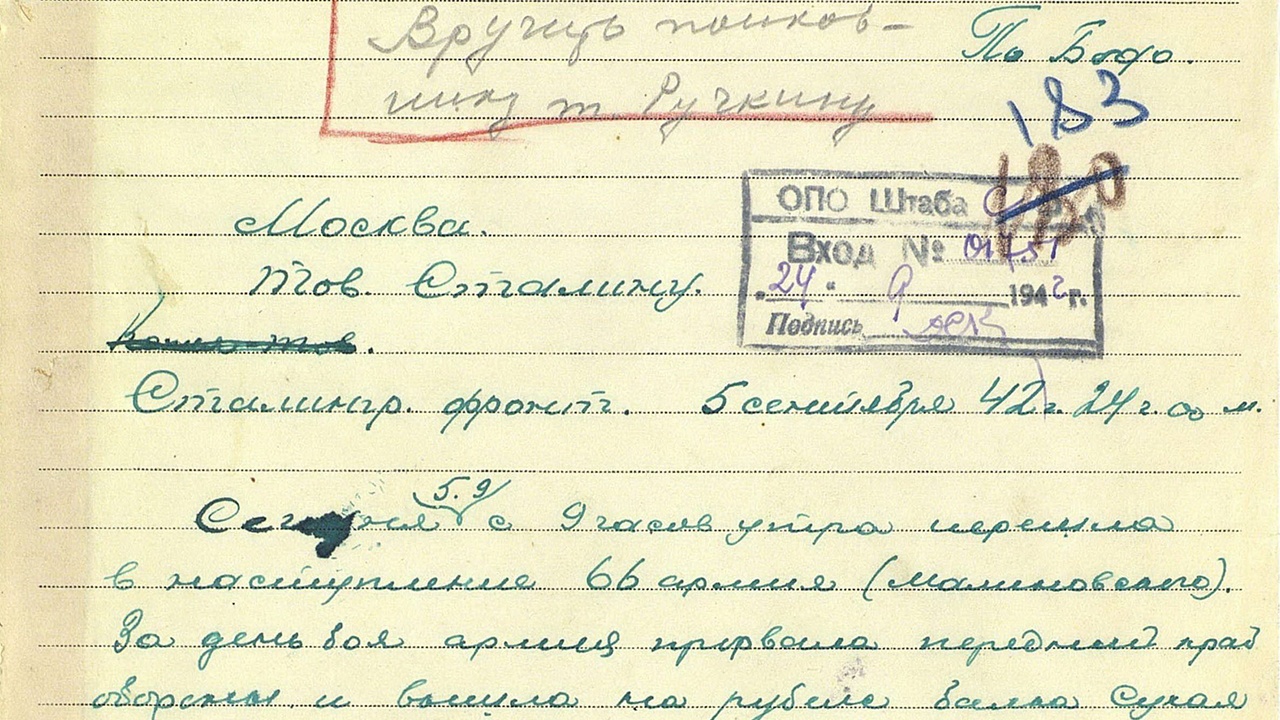 Вручить полков-
нику т. Ручкину
По Бодо.
183
180
ОПО Штаба
Вход №
"24" 9 1942 г.
Подпись
Москва.
Тов. Сталину.
Копия тов.
Сталингр. фронт. 5 сентября 42 г. 24 г. 00 м.
Сегодня 5.9 с 9 часов утра перешла
в наступление 66 армия (Малиновского).
За день боя армия прорвала передний край
обороны и вышла на рубеж балка Сухая